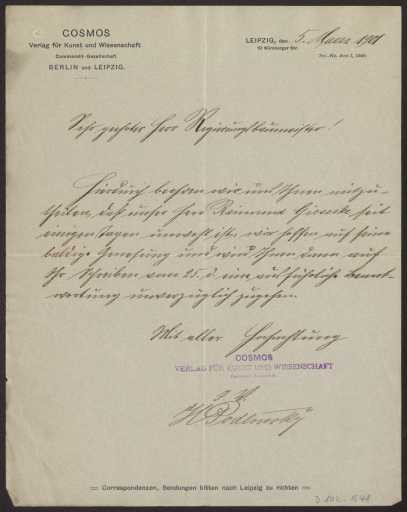 COSMOS
Verlag für Kunst und Wissenschaft
Commandit-Gesellschaft
BERLIN und LEIPZIG.
LEIPZIG, den 5. März 1901
10 Nürnberger Str.
Sehr geehrter Herr Regierungsbaumeister!
Hierdurch beehren wir uns Ihnen mitzu-
theilen, daß unser Herr seit
einigen Tagen unwohl ist, wir hoffen auf seine
baldige Genesung und wird Ihnen dann auf
Ihr Schreiben vom 25. d. eine ausführliche Beant-
wortung unverzüglich zugehen.
Mit aller Hochachtung
COSMOS
VERLAG FÜR KUNST UND WISSENSCHAFT
Correspondenzen, Sendungen bitten nach Leipzig zu richten